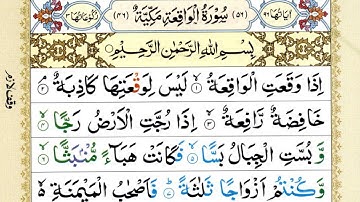 اٰيَاتُهَا ٩٦ (٥٦) سُوْرَةُ الْوَاقِعَةِ مَكِّيَّةٌ (٤٦) رُكُوْعَاتُهَا ٣
بِسْمِ اللّٰهِ الرَّحْمٰنِ الرَّحِيْمِ
اِذَا وَقَعَتِ الْوَاقِعَةُ ۙ‏﴿۱﴾ لَيْسَ لِوَقْعَتِهَا كَاذِبَةٌ ۘ‏﴿۲﴾
خَافِضَةٌ رَّافِعَةٌ ۙ‏﴿۳﴾ اِذَا رُجَّتِ الْاَرْضُ رَجًّا ۙ‏﴿۴﴾
وَّ بُسَّتِ الْجِبَالُ بَسًّا ۙ‏﴿۵﴾ فَكَانَتْ هَبَآءً مُّنْۢبَثًّا ۙ‏﴿۶﴾
وَّ كُنْتُمْ اَزْوَاجًا ثَلٰثَةً ؕ‏﴿۷﴾ فَاَصْحٰبُ الْمَيْمَنَةِ ۙ
وقف لازم